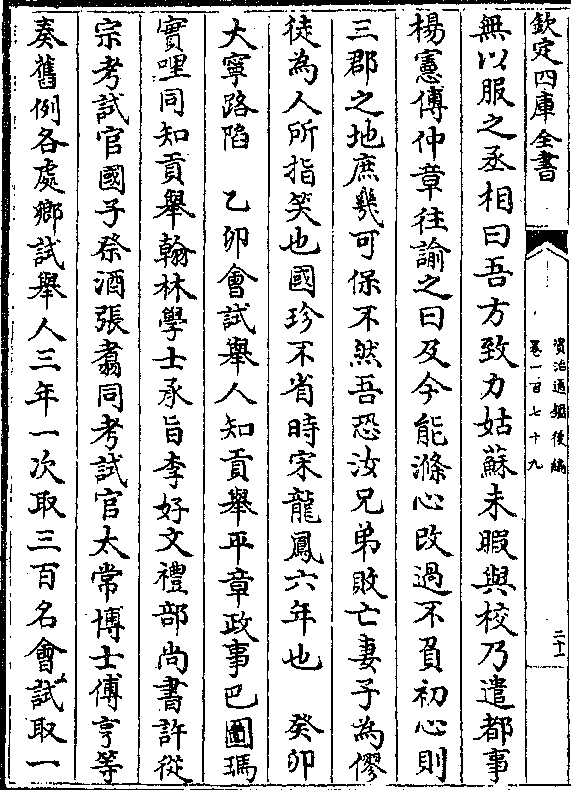 欽定四庫全書
資治通鑑後編
卷一百七十九
三十二
無以服之丞相曰吾方致力姑蘇未暇與校乃遣都事
楊憲傅仲章往諭之曰及今能滌心改過不負初心則
三郡之地庶幾可保不然吾恐汝兄弟敗亡妻子為僇
徒為人所指笑也國珍不省時宋龍鳳六年也　癸卯
大寧路陷　乙卯會試舉人知貢舉平章政事巴圖瑪
實哩同知貢舉翰林學士承旨李好文禮部尚書許從
宗考試官國子祭酒張翥同考試官太常博士傅亨等
奏舊例各處鄉試舉人三年一次取三百名會試取一